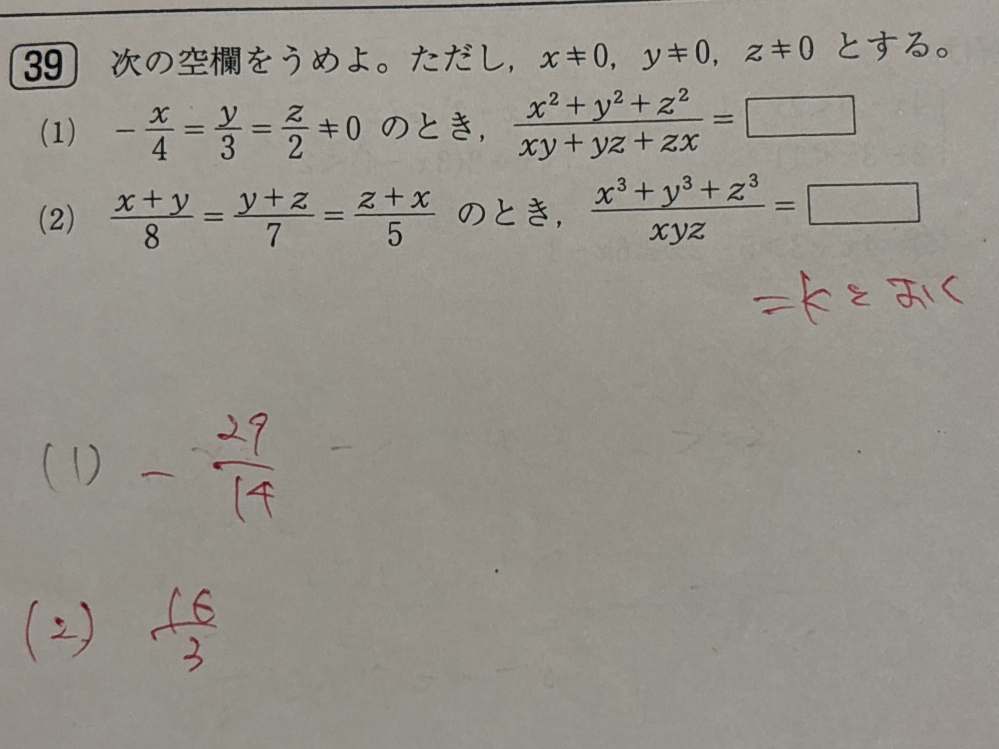 39 次の空欄をうめよ。ただし, x≠0, y≠0, z≠0 とする。
(1) -x/4 = y/3 = z/2 ≠0 のとき, (x²+y²+z²)/(xy+yz+zx) = □
(2) (x+y)/8 = (y+z)/7 = (z+x)/5 のとき, (x³+y³+z³)/xyz = □
=kとおく
(1) -29/14
(2) 16/3